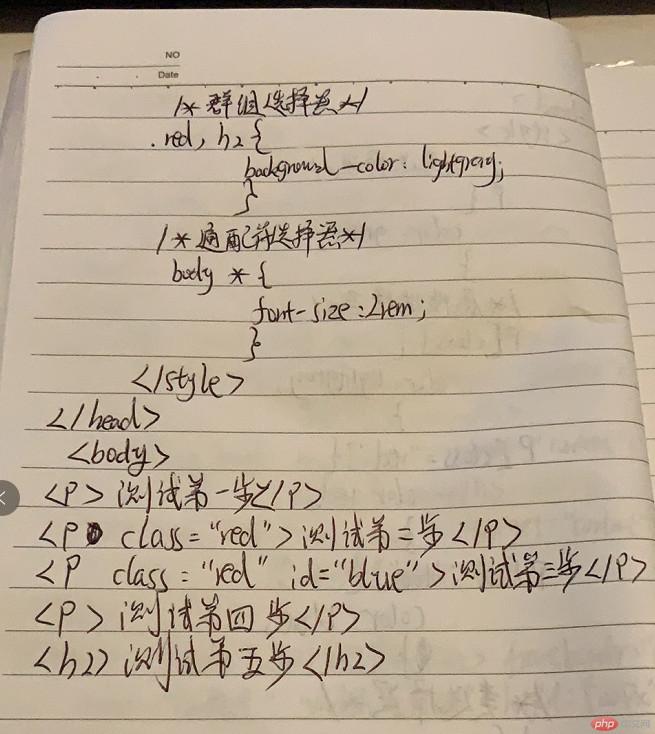 NO
Date
/* 群组选择器 */
.red, h2 {
background-color: lightgray;
}
/* 通配符选择器 */
body * {
font-size: 2rem;
}
</style>
</head>
<body>
<P> 测试第一步</P>
<P class="red"> 测试第二步</P>
<P class="red" id="blue"> 测试第三步</P>
<P> 测试第四步</P>
<h2> 测试第五步</h2>
php